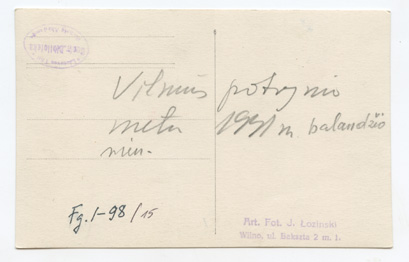 Vilnius potvynio
metu 1931 m. balandžio
mėn.
Fg. 1-98/15
Art. Fot. J. Łoziński
Wilno, ul.
2 m. 1.